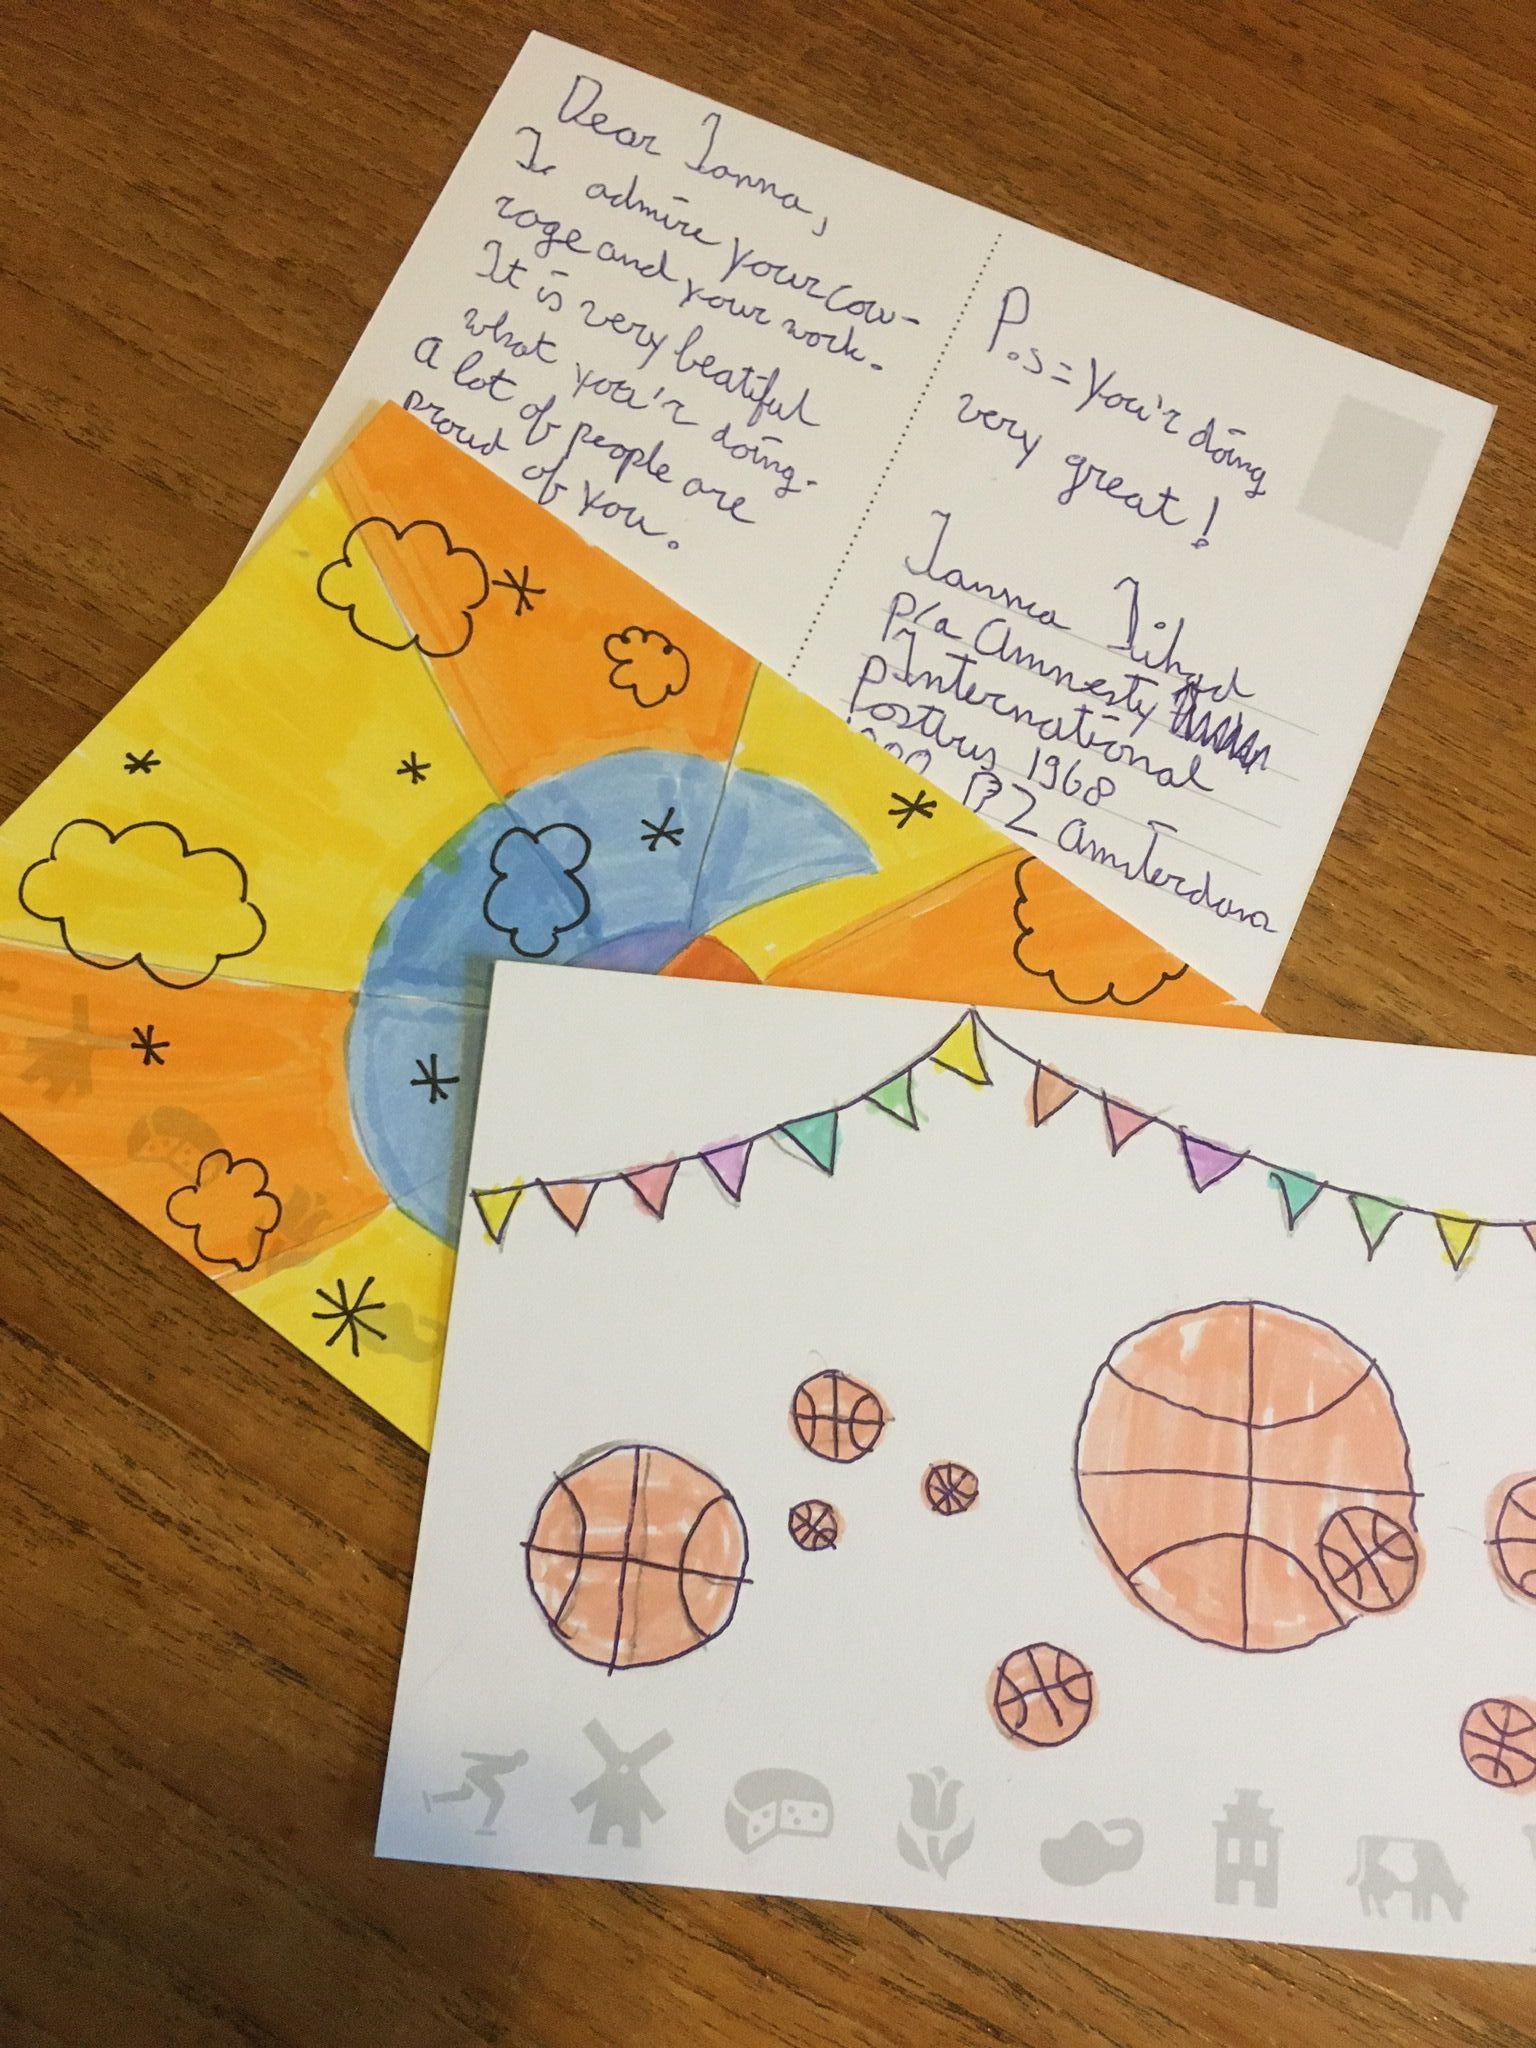 Dear Janna,
I admire your cou-
rage and your work.
It is very beatiful
what you'r doing.
A lot of people are
proud of you.
P.s = You'r doing
very great!
Janna Jihad
p/a Amnesty
International
Postbus 1968
BZ Amsterdam